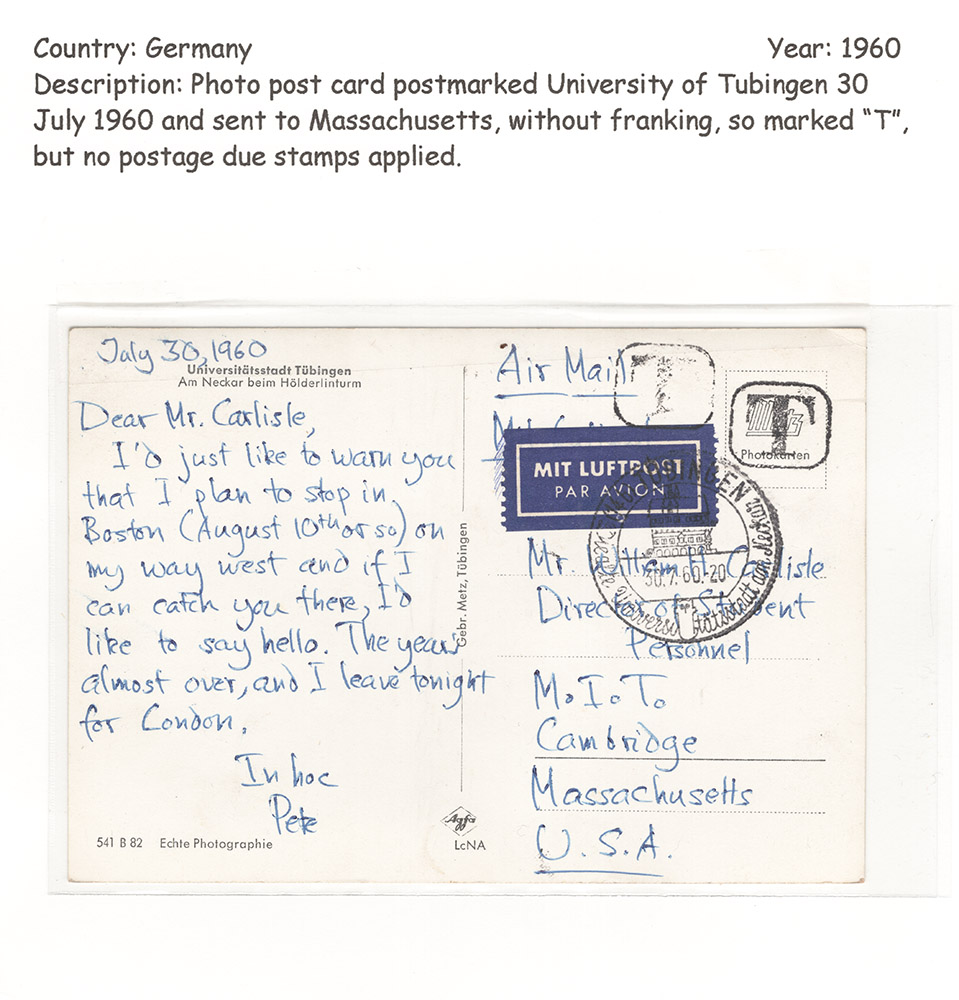 Country: Germany Year: 1960
Description: Photo post card postmarked University of Tubingen 30
July 1960 and sent to Massachusetts, without franking, so marked “T”,
but no postage due stamps applied.
July 30, 1960
Universitätsstadt Tübingen
Am Neckar beim Hölderlinturm
Dear Mr. Carlisle,
I'd just like to warn you
that I plan to stop in
Boston (August 10th or so) on
my way west and if I
can catch you there, I'd
like to say hello. The years
almost over, and I leave tonight
for London.
In hoc
Pete
541 B 82 Echte Photographie
Gebr. Metz, Tübingen
Agfa
LcNA
Air Mail
T
T
Metz
Photokarten
MIT LUFTPOST
PAR AVION
TÜBINGEN
30.7.60.-20
Universitätsstadt am Neckar
Mr. William H. Carlisle
Director of Student
Personnel
M.I.T.
Cambridge
Massachusetts
U.S.A.